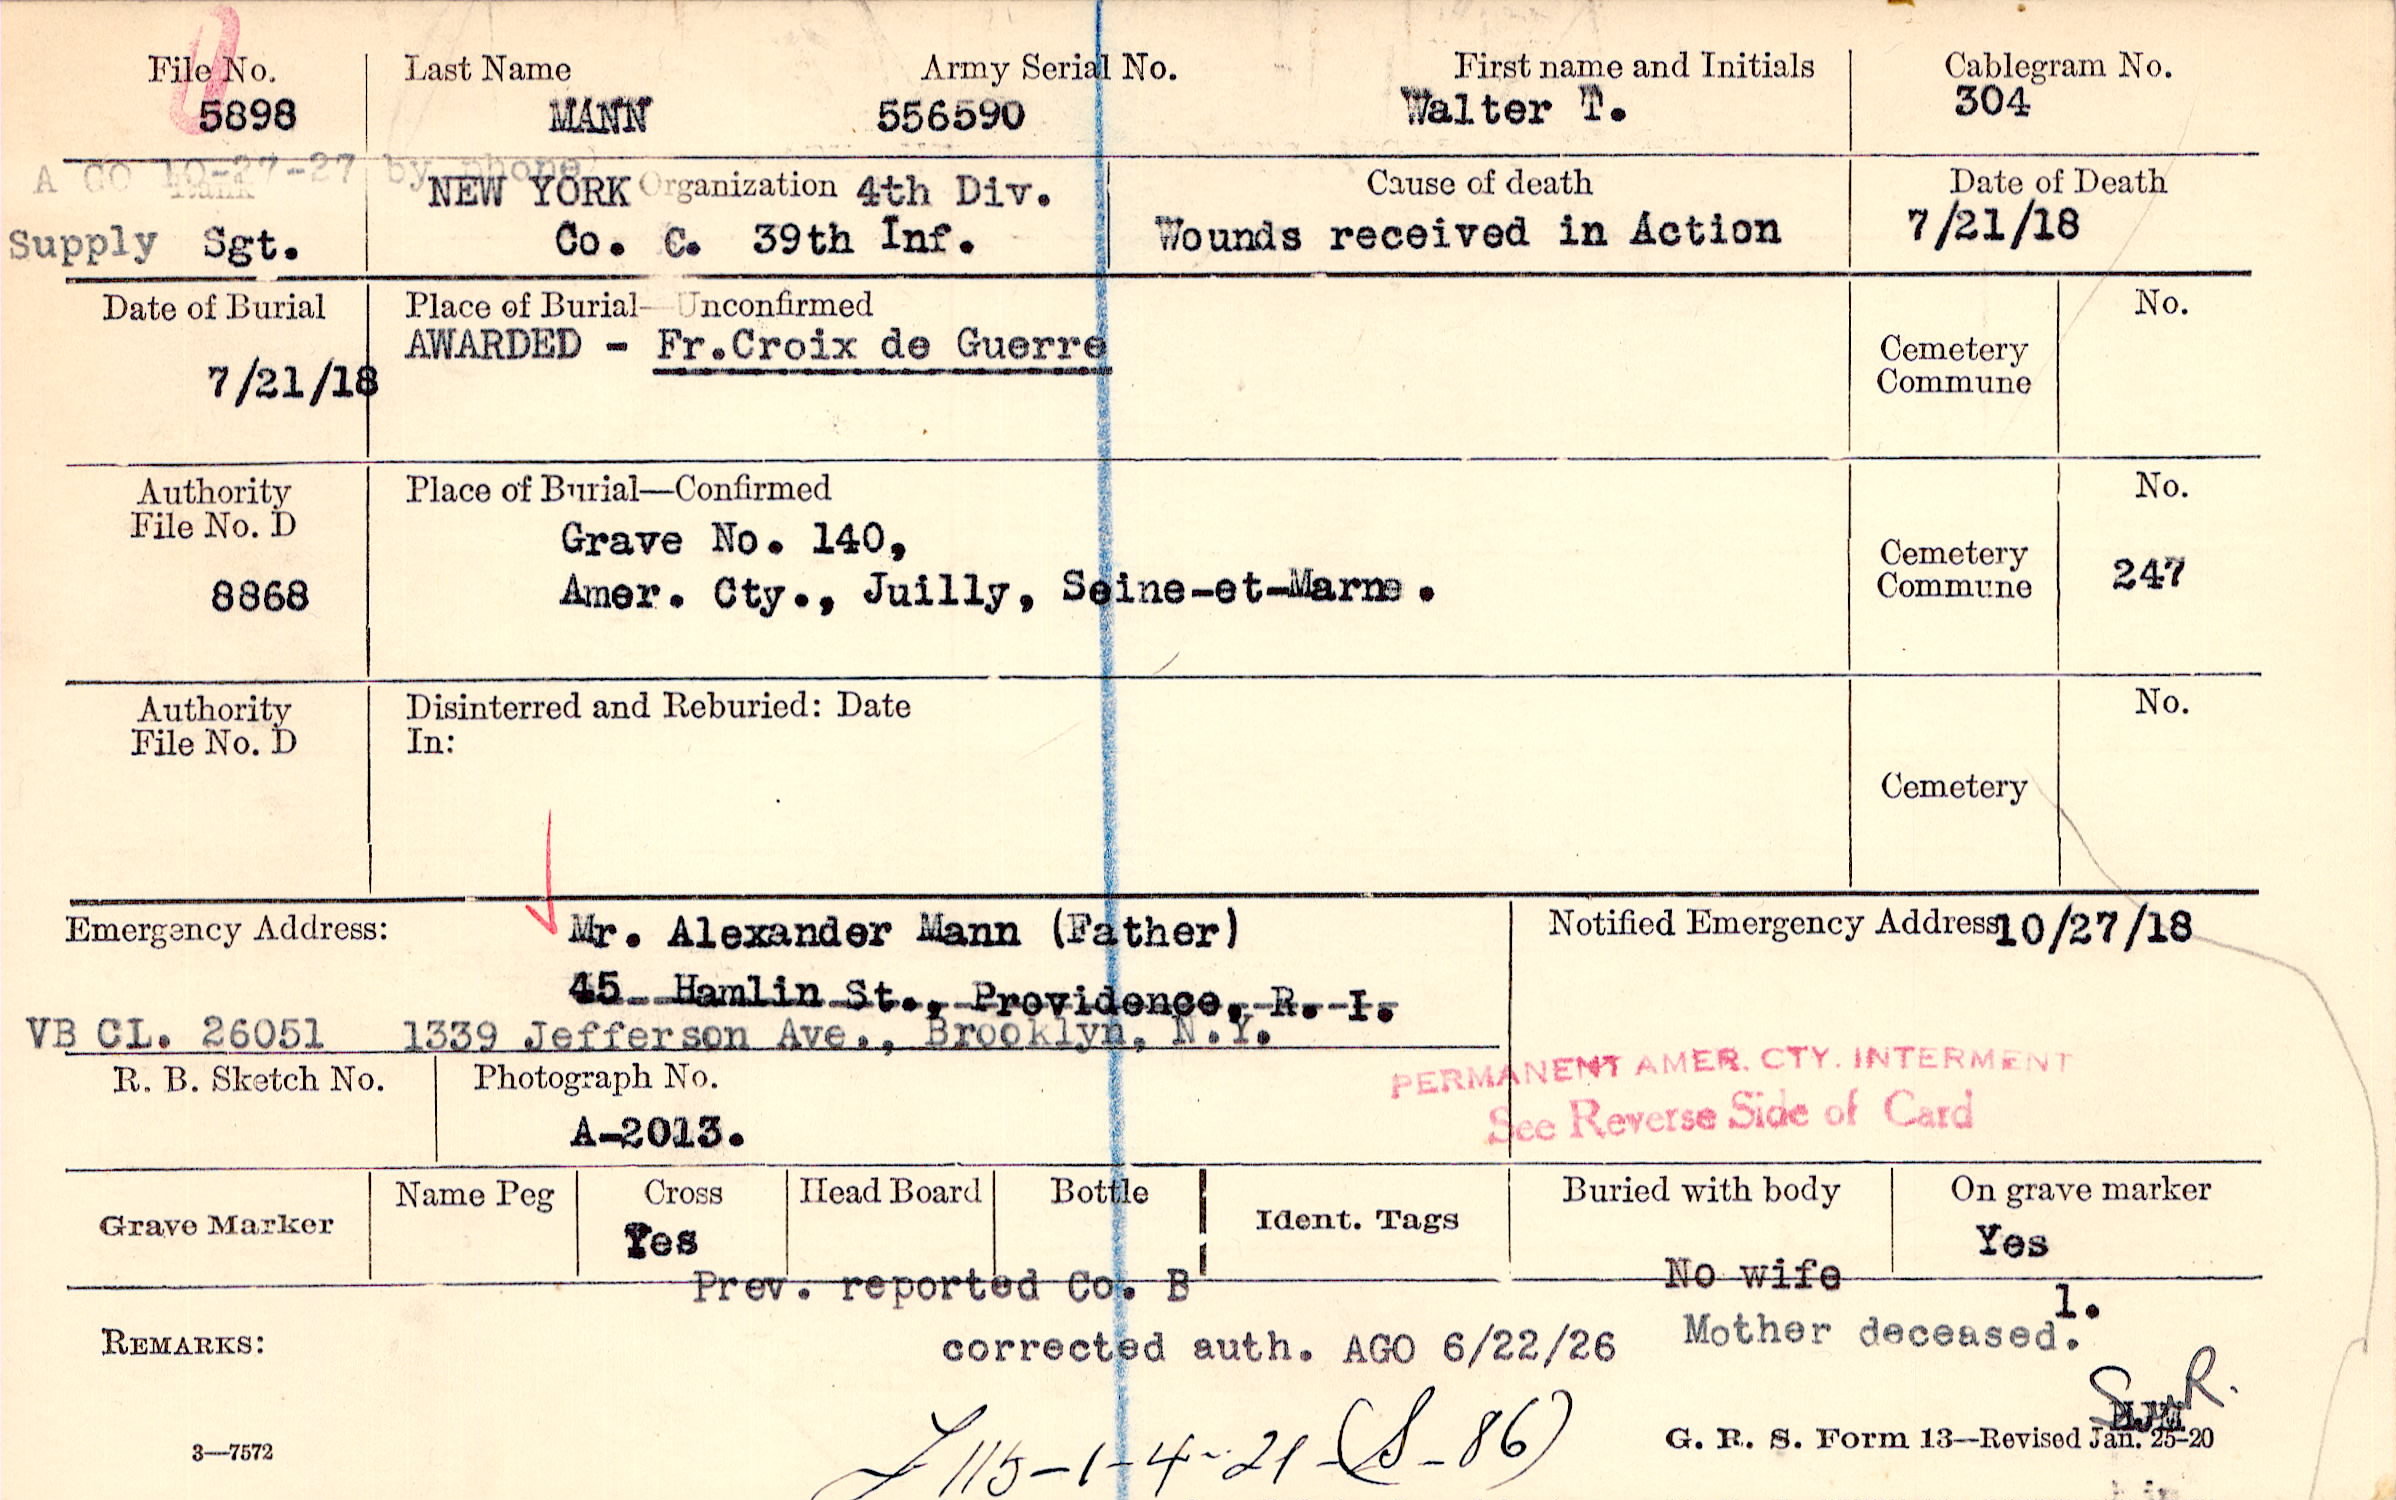 File No. Last Name Army Serial No. First name and Initials Cablegram No.
5898 MANN 556590 Walter T. 304
A GO 10-27-27 by phone
Rank NEW YORK Organization 4th Div. Cause of death Date of Death
Supply Sgt. Co. C. 39th Inf. Wounds received in Action 7/21/18
Date of Burial Place of Burial—Unconfirmed No.
AWARDED - Fr.Croix de Guerre
7/21/18 Cemetery
Commune
Authority Place of Burial—Confirmed No.
File No. D
Grave No. 140,
8868 Amer. Cty., Juilly, Seine-et-Marne. Cemetery
Commune 247
Authority Disinterred and Reburied: Date No.
File No. D In:
Cemetery
Emergency Address: Mr. Alexander Mann (Father) Notified Emergency Address 10/27/18
45 Hamlin St., Providence, R. I.
VB CL. 26051 1339 Jefferson Ave., Brooklyn, N.Y.
R. B. Sketch No. Photograph No. PERMANENT AMER. CTY. INTERMENT
A-2013. See Reverse Side of Card
Grave Marker Name Peg Cross Head Board Bottle Ident. Tags Buried with body On grave marker
Yes Yes
Prev. reported Co. B No wife
1.
REMARKS: corrected auth. AGO 6/22/26 Mother deceased.
115-1-4-21-(S-86)
3—7572 G. R. S. Form 13—Revised Jan. 25-20